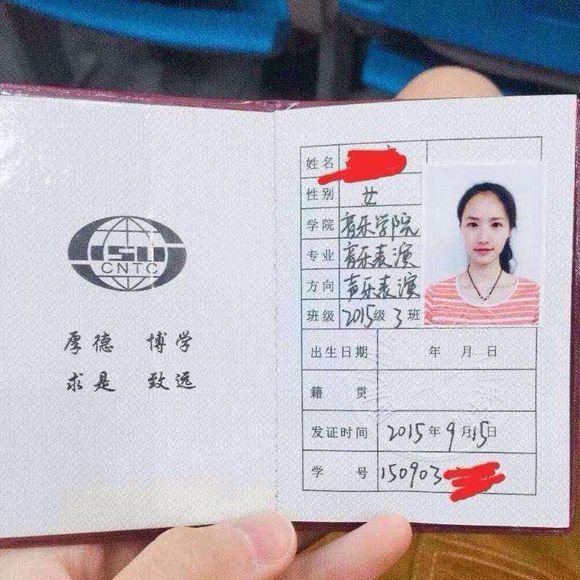 ISU
CNTC
厚德 博学
求是 致远
姓名
性别 女
学院 音乐学院
专业 音乐表演
方向 声乐表演
班级 2015级3班
出生日期 年 月 日
籍 贯
发证时间 2015年9月15日
学 号 150903